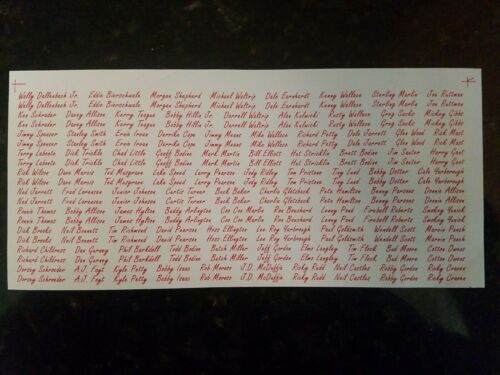 Wally Dallenbach Jr. Eddie Bierschwale Morgan Shepherd Michael Waltrip Dale Earnhardt Kenny Wallace Sterling Marlin Joe Ruttman
Wally Dallenbach Jr. Eddie Bierschwale Morgan Shepherd Michael Waltrip Dale Earnhardt Kenny Wallace Sterling Marlin Joe Ruttman
Ken Schrader Davey Allison Kerry Teague Bobby Hillin Jr. Darrell Waltrip Alan Kulwicki Rusty Wallace Greg Sacks Mickey Gibbs
Ken Schrader Davey Allison Kerry Teague Bobby Hillin Jr. Darrell Waltrip Alan Kulwicki Rusty Wallace Greg Sacks Mickey Gibbs
Jimmy Spencer Stanley Smith Ernie Irvan Derrike Cope Jimmy Means Mike Wallace Richard Petty Dale Jarrett Glen Wood Rick Mast
Jimmy Spencer Stanley Smith Ernie Irvan Derrike Cope Jimmy Means Mike Wallace Richard Petty Dale Jarrett Glen Wood Rick Mast
Terry Labonte Dick Trickle Chad Little Geoff Bodine Mark Martin Bill Elliott Hut Stricklin Brett Bodine Jim Sauter Harry Gant
Terry Labonte Dick Trickle Chad Little Geoff Bodine Mark Martin Bill Elliott Hut Stricklin Brett Bodine Jim Sauter Harry Gant
Rick Wilson Dave Marcis Ted Musgrave Lake Speed Larry Pearson Jody Ridley Tom Pistone Tiny Lund Bobby Dotter Cale Yarborough
Rick Wilson Dave Marcis Ted Musgrave Lake Speed Larry Pearson Jody Ridley Tom Pistone Tiny Lund Bobby Dotter Cale Yarborough
Ned Jarrett Fred Lorenzen Junior Johnson Curtis Turner Buck Baker Charlie Glotzbach Pete Hamilton Benny Parsons Donnie Allison
Ned Jarrett Fred Lorenzen Junior Johnson Curtis Turner Buck Baker Charlie Glotzbach Pete Hamilton Benny Parsons Donnie Allison
Ronnie Thomas Bobby Allison Jimmy Hensley Buddy Arrington Coo Coo Marlin Ron Bouchard Lenny Pond Fireball Roberts Smokey Yunick
Ronnie Thomas Bobby Allison Jimmy Hensley Buddy Arrington Coo Coo Marlin Ron Bouchard Lenny Pond Fireball Roberts Smokey Yunick
Dick Brooks Neil Bonnett Tim Richmond David Pearson Hoss Ellington Lee Roy Yarbrough Paul Goldsmith Wendell Scott Marvin Panch
Dick Brooks Neil Bonnett Tim Richmond David Pearson Hoss Ellington Lee Roy Yarbrough Paul Goldsmith Wendell Scott Marvin Panch
Richard Childress Dan Gurney Phil Barkdoll Todd Bodine Butch Miller Jeff Gordon Elmo Langley Tim Flock Bud Moore Cotton Owens
Richard Childress Dan Gurney Phil Barkdoll Todd Bodine Butch Miller Jeff Gordon Elmo Langley Tim Flock Bud Moore Cotton Owens
Dorsey Schroeder A.J. Foyt Kyle Petty Bobby Isaac Rob Moroso J.D. McDuffie Ricky Rudd Neil Castles Rob Gordon Ricky Craven
Dorsey Schroeder A.J. Foyt Kyle Petty Bobby Isaac Rob Moroso J.D. McDuffie Ricky Rudd Neil Castles Ricky Craven